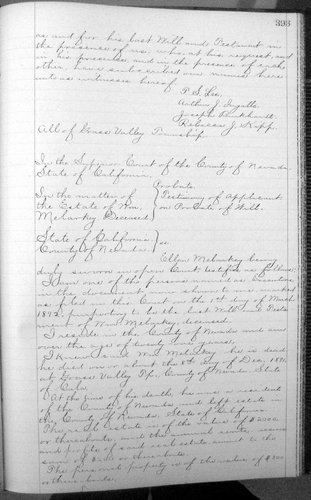 393
as and for his last Will and Testament in
the presence of us, who, at his request, and
in his presence, and in the presence of each
other, have subscribed our names hereunto
as witnesses hereof
P. S. Lee
Arthur J. Ingalls
Joseph
Rebecca J. Kipp
All of Grass Valley Township.
In the Superior Court of the County of Nevada,
State of California,
In the matter of
the Estate of Wm.
Deceased
Probate.
Testimony of Applicant
on Probate of Will.
State of California
County of Nevada } ss
Ellen being
duly sworn in open Court, testifies as follows:
I am one of the persons named as Executors
in the document now shown to me marked
as filed in this Court on the 1st day of March
purporting to be the last Will and Testament
of Wm deceased.
I reside in the County of Nevada and am
over the age of twenty one years.
I knew said Wm he is dead
he died on or about the day of Dec.
at Grass Valley County of Nevada State
of Cala
At the time of his death, he was a resident
of the County of Nevada and left estate in
the County of Nevada, State of California
The real estate is of the value of
or thereabouts, and the annual rents, issues
and profits of said real estate amount to the
sum of or thereabouts.
The personal property is of the value of
or thereabouts.